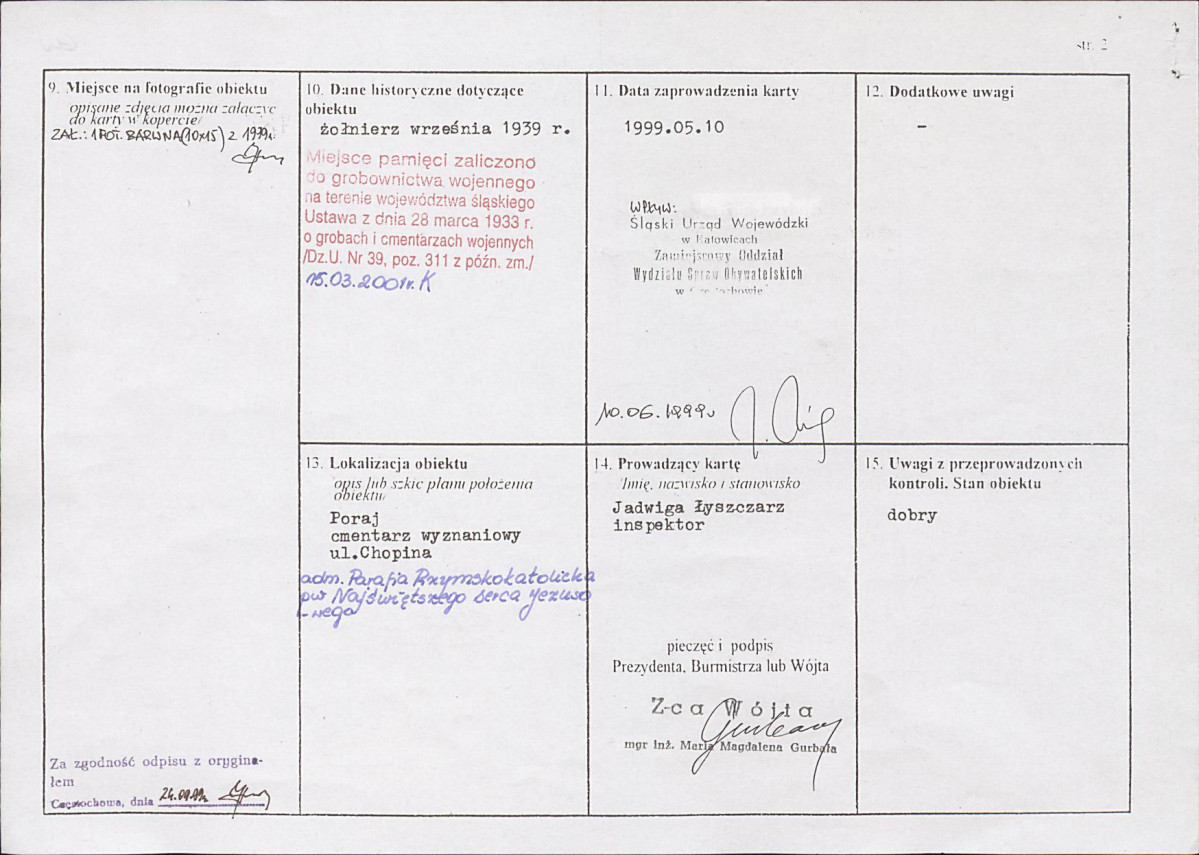 str. 2
9. Miejsce na fotografie obiektu
opisane zdjęcia można załączyć
do karty w kopercie/
ZAŁ.: 1 FOT. BARWNA (10x15) z 1979r.
10. Dane historyczne dotyczące
obiektu
żołnierz września 1939 r.
Miejsce pamięci zaliczono
do grobownictwa wojennego
na terenie województwa śląskiego
Ustawa z dnia 28 marca 1933 r.
o grobach i cmentarzach wojennych
/Dz.U. Nr 39, poz. 311 z późn. zm./
15.03.2001r. K
11. Data zaprowadzenia karty
1999.05.10
WPŁYW:
Śląski Urząd Wojewódzki
w Katowicach
Zamiejscowy Oddział
Wydziału Spraw Obywatelskich
w Częstochowie
10.06.1999r
12. Dodatkowe uwagi
–
13. Lokalizacja obiektu
opis lub szkic planu położenia
obiektu/
Poraj
cmentarz wyznaniowy
ul.Chopina
adm. Parafia Rzymskokatolicka
pw Najświętszego Serca Jezuso
-wego
14. Prowadzący kartę
/Imię, nazwisko i stanowisko
Jadwiga Łyszczarz
inspektor
pieczęć i podpis
Prezydenta, Burmistrza lub Wójta
Z-ca Wójta
mgr inż. Maria Magdalena Gurbała
15. Uwagi z przeprowadzonych
kontroli. Stan obiektu
dobry
Za zgodność odpisu z orygina-
łem
Częstochowa, dnia